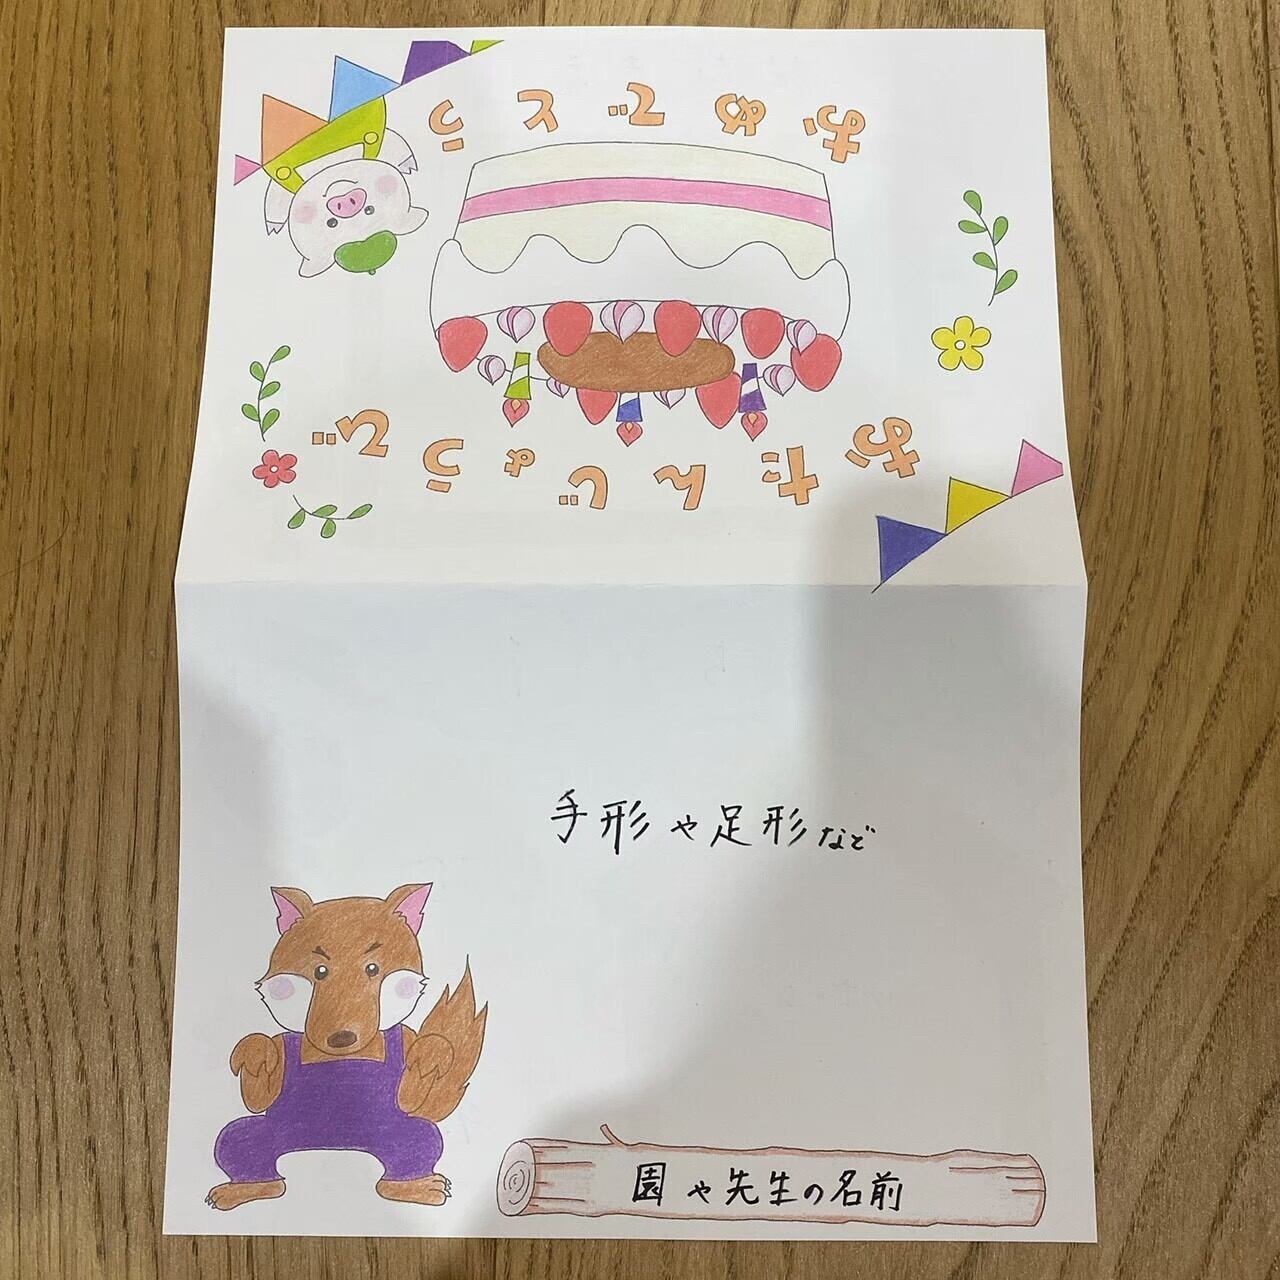 おたんじょうび
おめでとう
手形や足形など
園や先生の名前